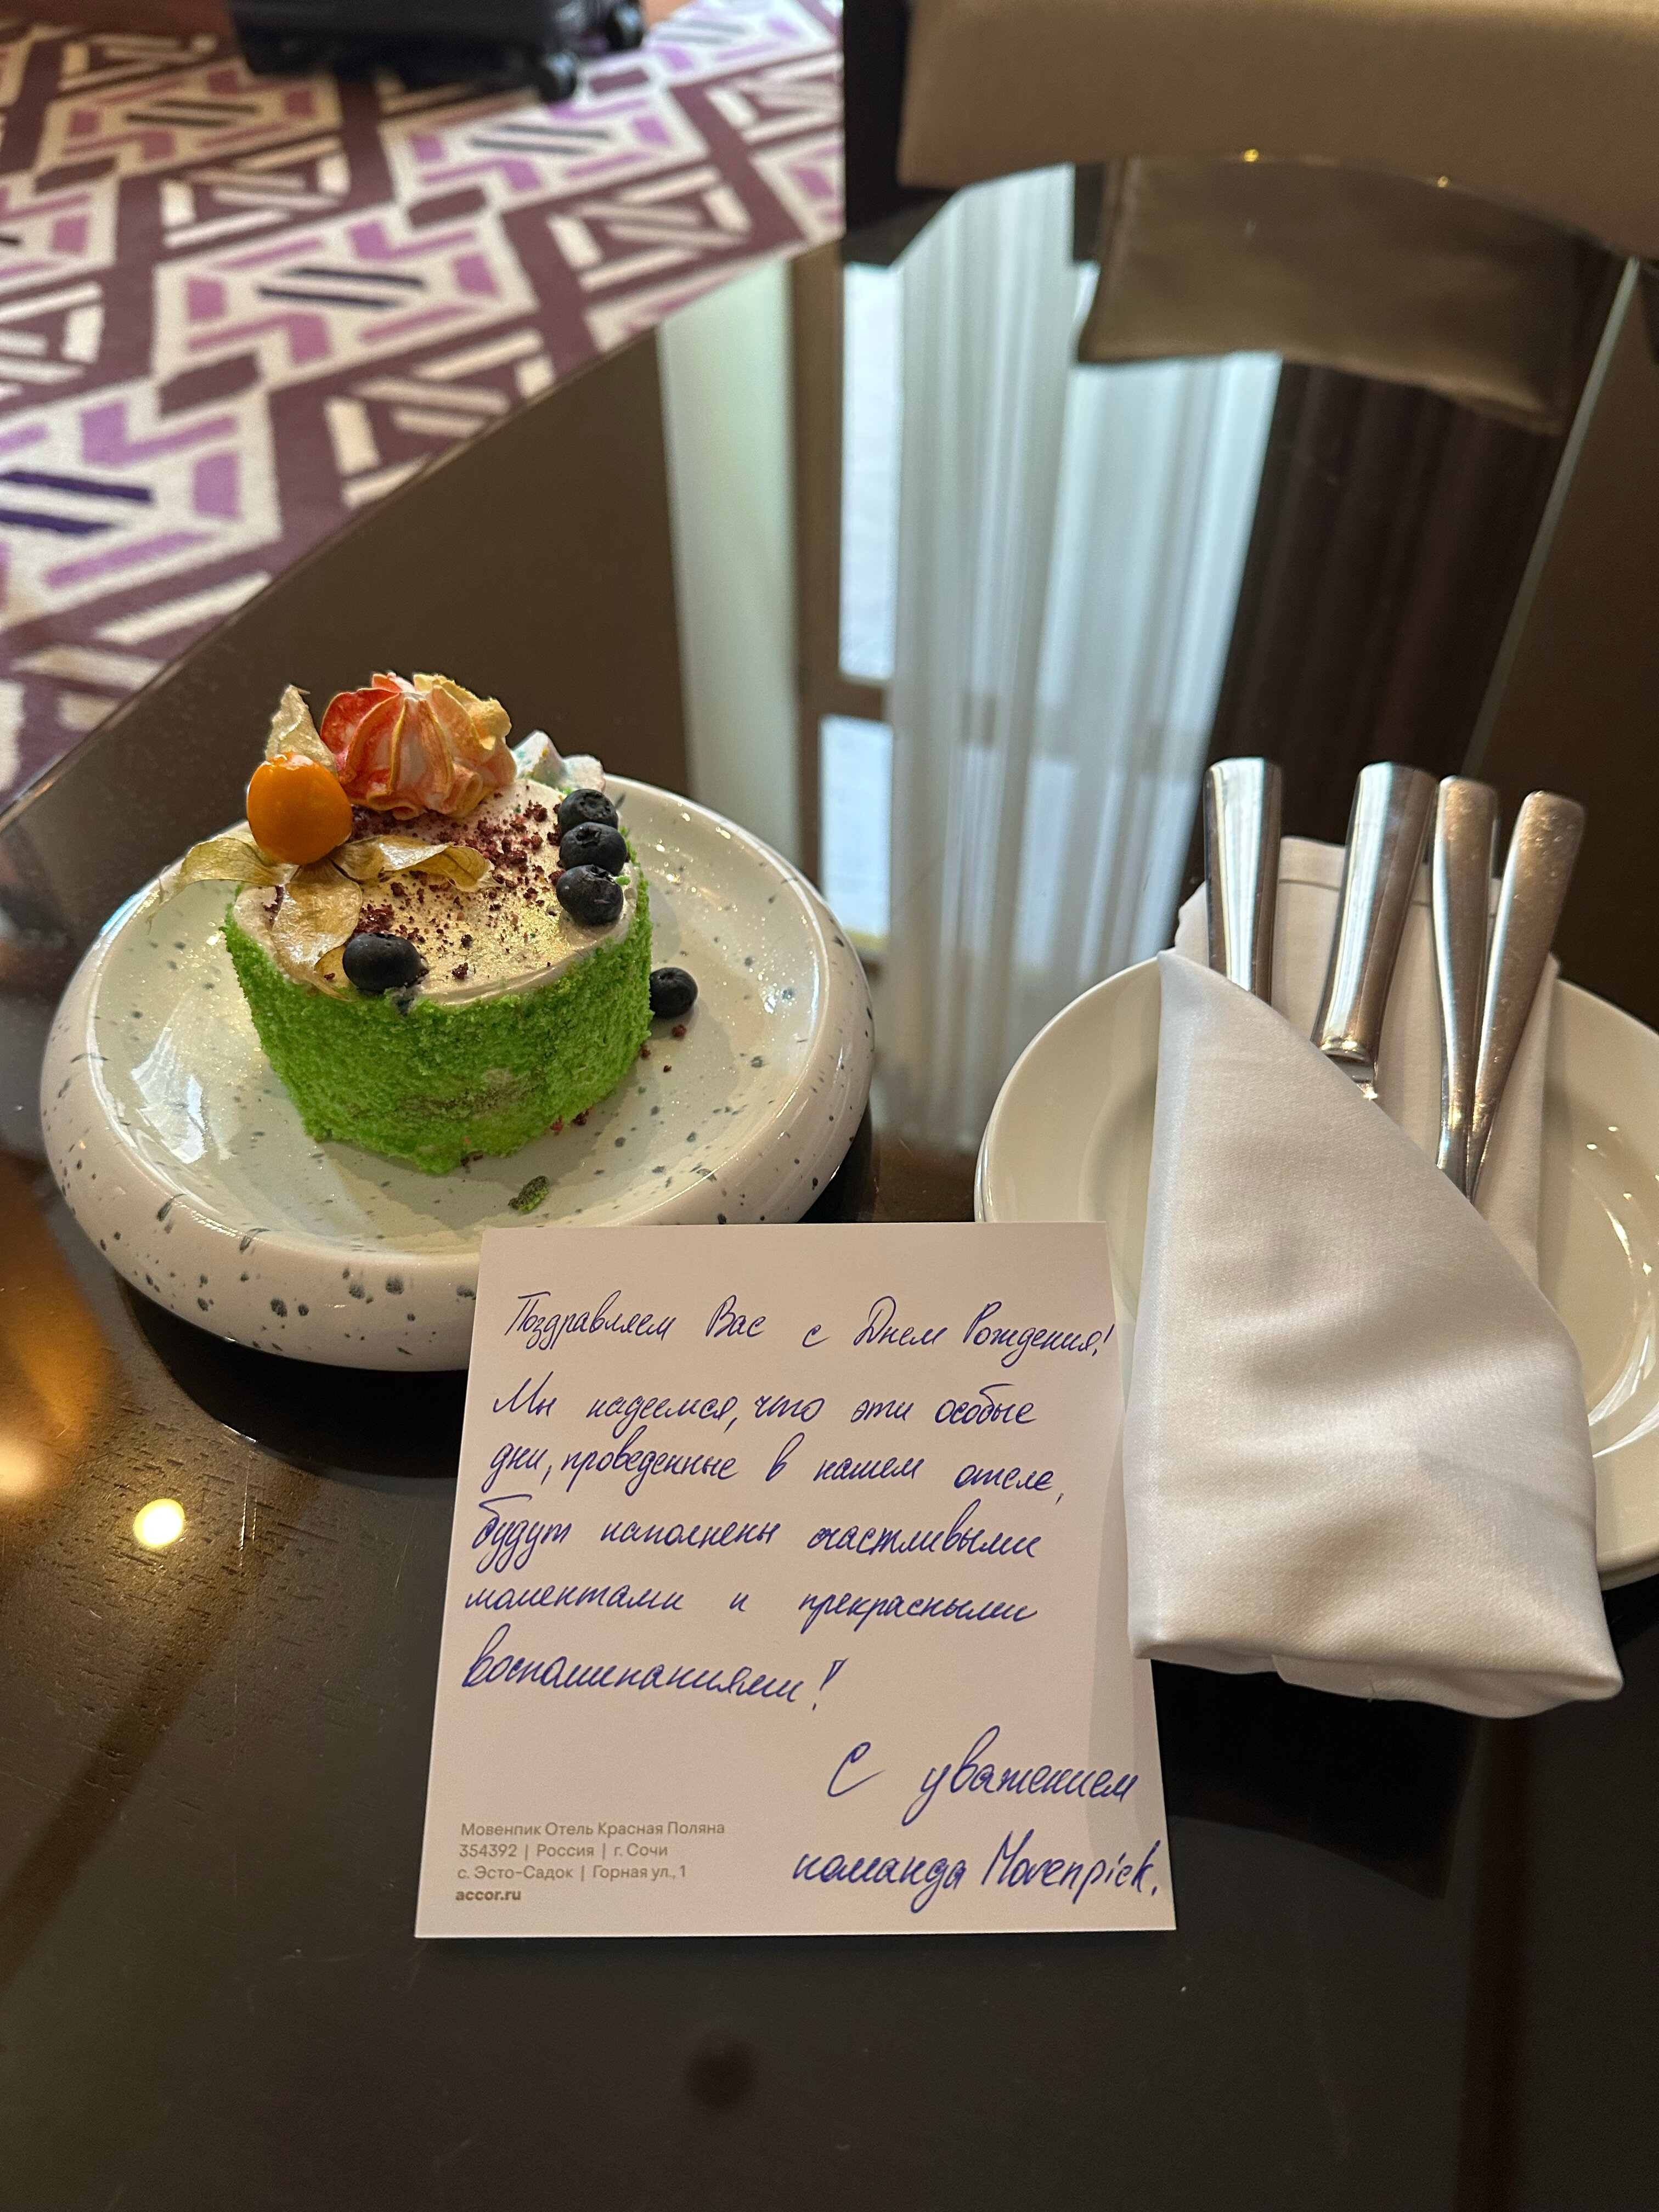 Поздравляем Вас с Днем Рождения!
Мы надеемся, что эти особые
дни, проведенные в нашем отеле,
будут наполнены счастливыми
моментами и прекрасными
воспоминаниями!
С уважением
команда Movenpick.
Мовенпик Отель Красная Поляна
354392 | Россия | г. Сочи
с. Эсто-Садок | Горная ул., 1
accor.ru